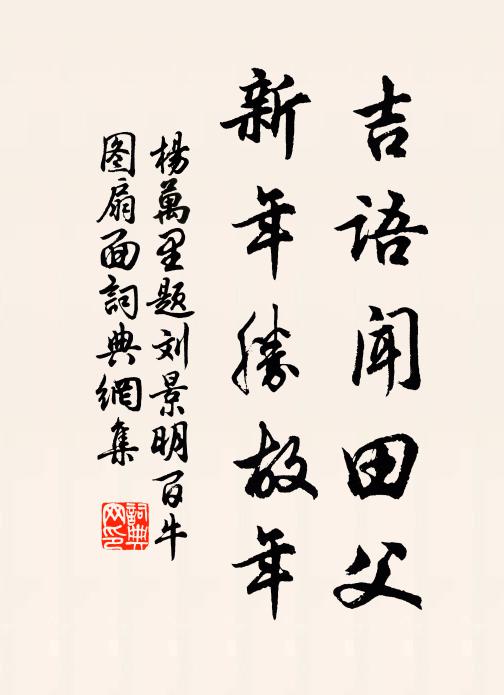 吉语闻田父
新年勝故年
楊萬里题刘景明百牛
图扇面詞典網集
詞典
网印